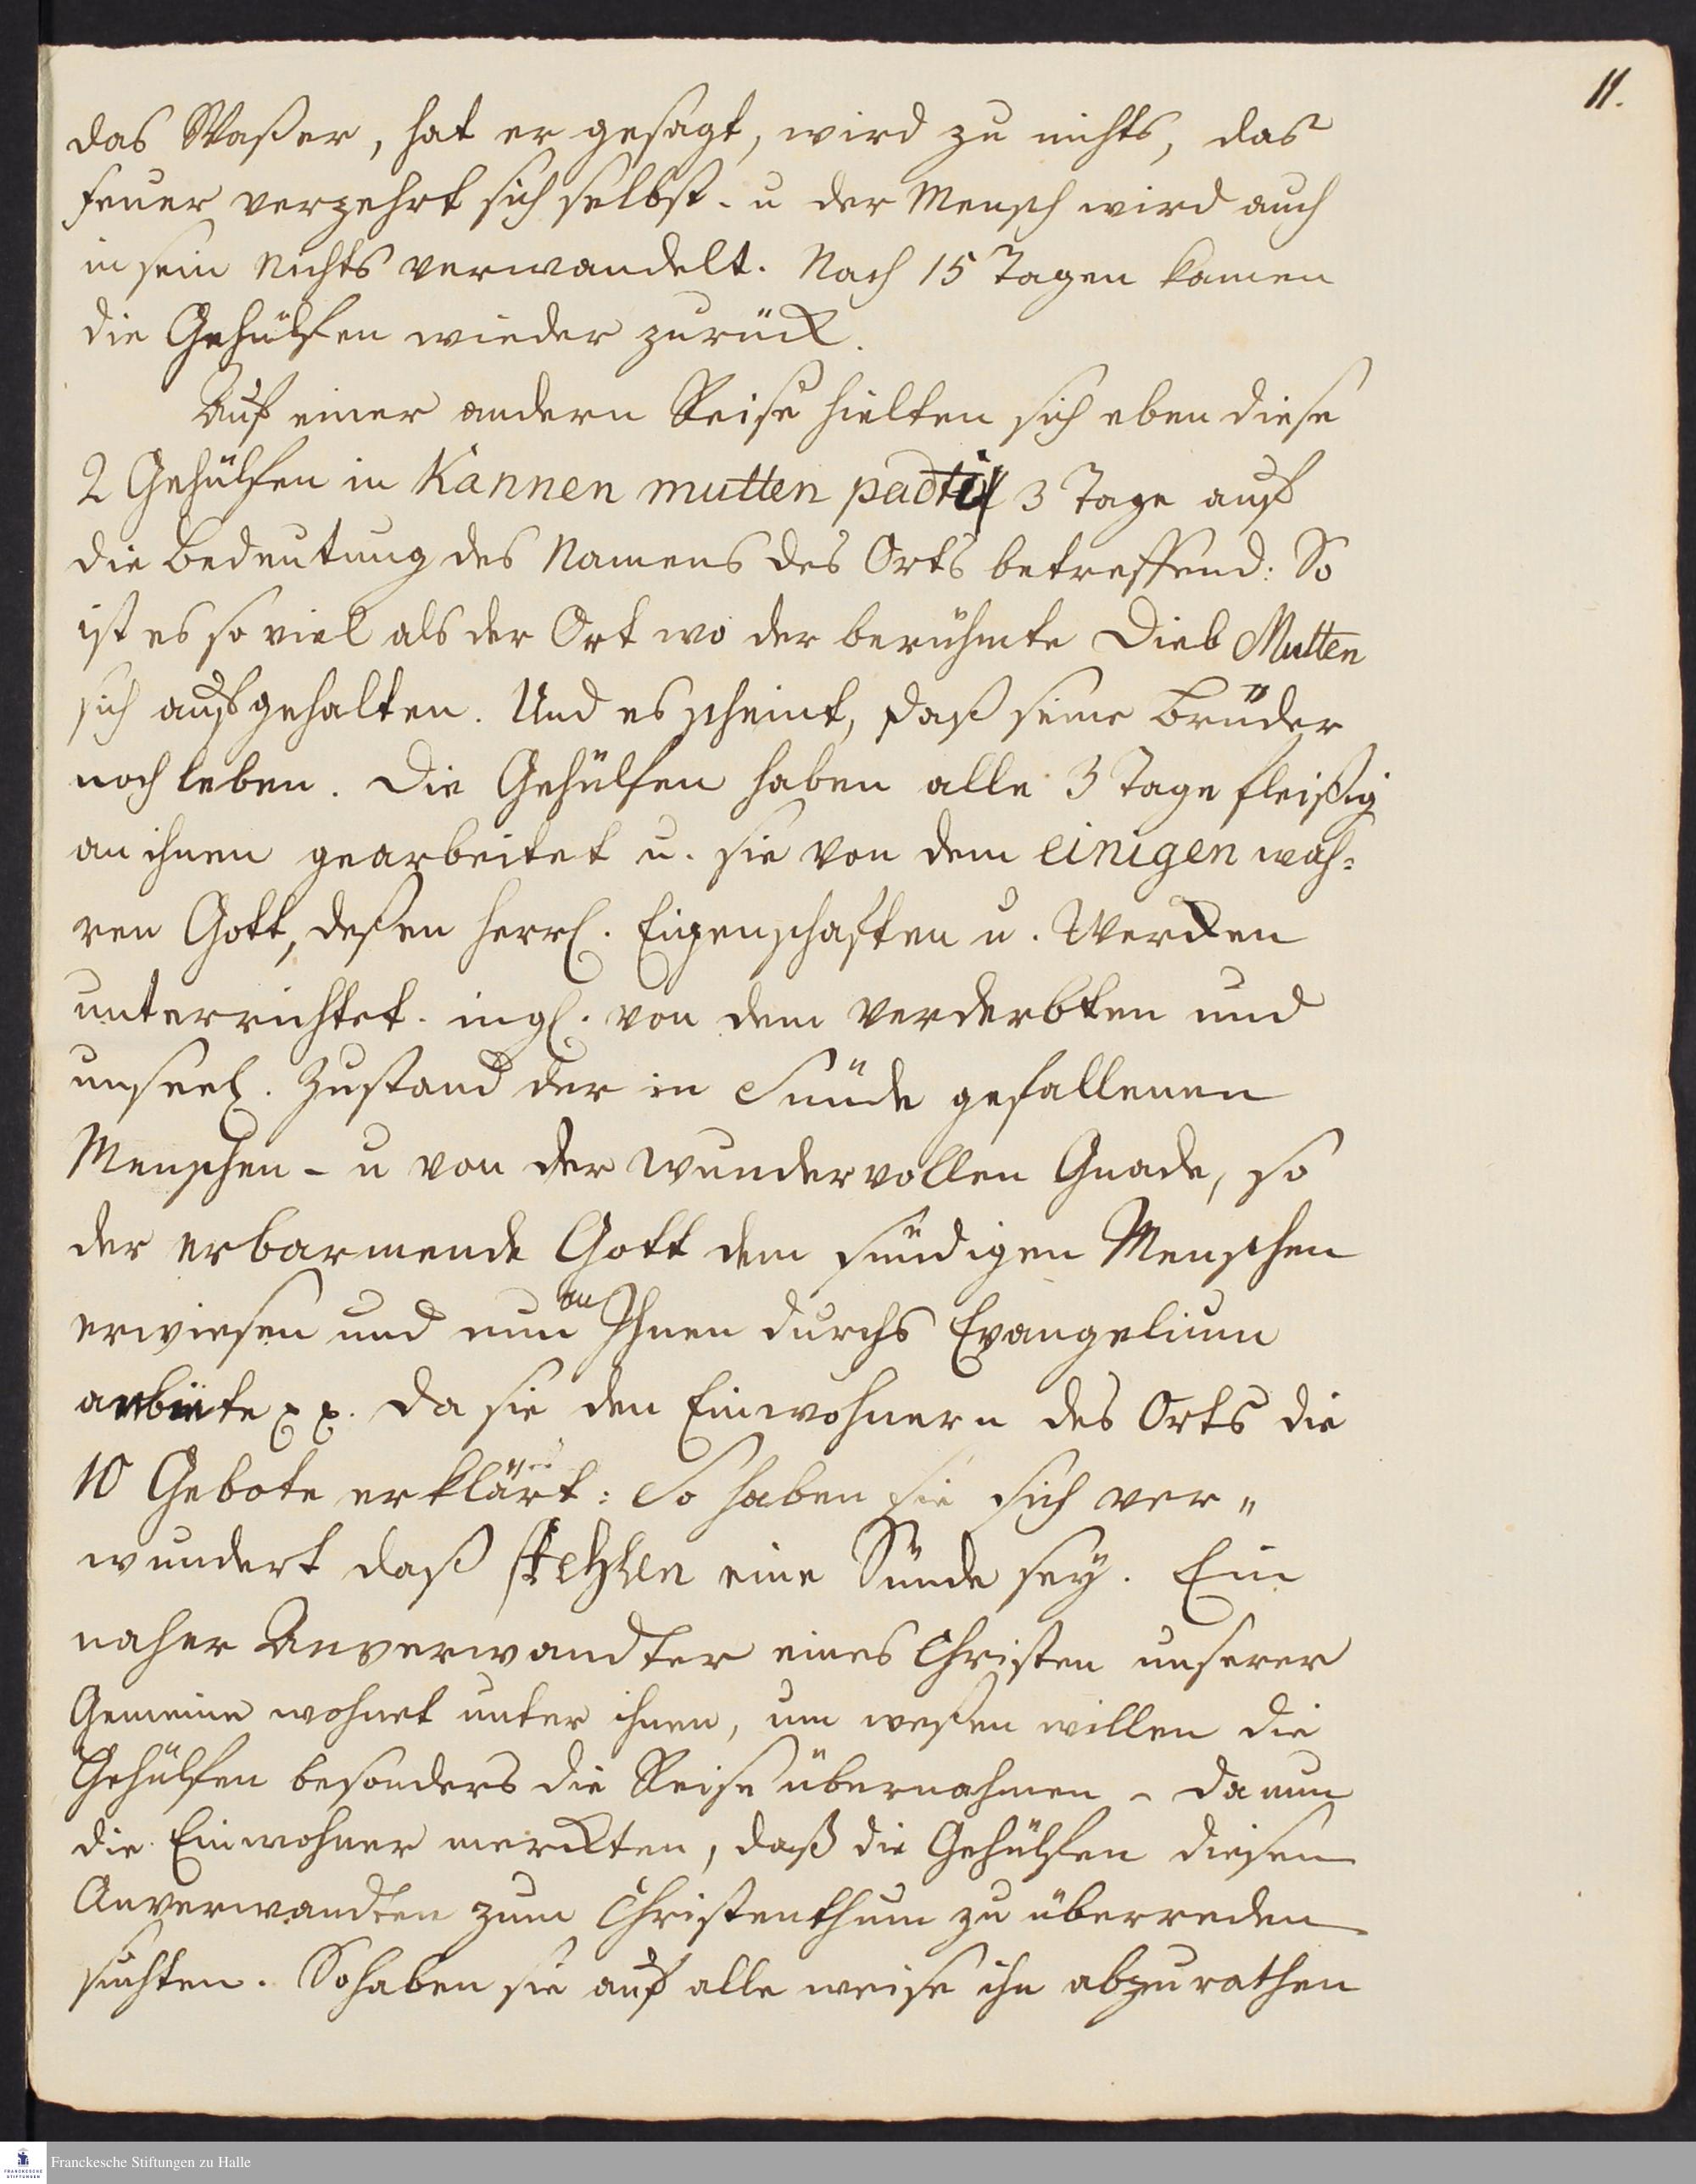 11.
das Waßer, hat er gesagt, wird zu nichts, das
Feuer verzehrt sich selbst. u der Mensch wird auch
in sein Nichts verwandelt. Nach 15 Tagen kamen
die Gehülfen wieder zurück.
Auf einer andern Reise hielten sich eben diese
2 Gehülfen in Kannen mutten padti 3 Tage auf
die Bedeutung des Namens des Orts betreffend: So
ist es so viel als der Ort wo der berühmte Dieb Mutten
sich aufgehalten. Und es scheint, daß seine Brüder
noch leben. Die Gehülfen haben alle 3 Tage fleißig
an ihnen gearbeitet u. sie von dem einigen wah=
ren Gott, deßen herrl. Eigenschaften u. Wercken
unterrichtet. ingl. von dem verderbten und
unseel. Zustand der in Sünde gefallenen
Menschen - u von der wundervollen Gnade, so
der erbarmende Gott dem sündigen Menschen
erwiesen und nun an Ihnen durchs Evangelium
anbiete pp. Da sie den Einwohnern des Orts die
10 Gebote erklärt: So haben sie sich ver"
wundert daß stehlen eine Sünde sey. Ein
naher Anverwandter eines Christen unserer
Gemeine wohnet unter ihnen, um weßen willen die
Gehülfen besonders die Reise übernahmen - da nun
die Einwohner merckten, daß die Gehülfen diesen
Anverwandten zum Christenthum zu überreden
suchten. So haben sie auf alle weise ihn abzurathen
Franckesche Stiftungen zu Halle
FRANCKESCHE STIFTUNGEN